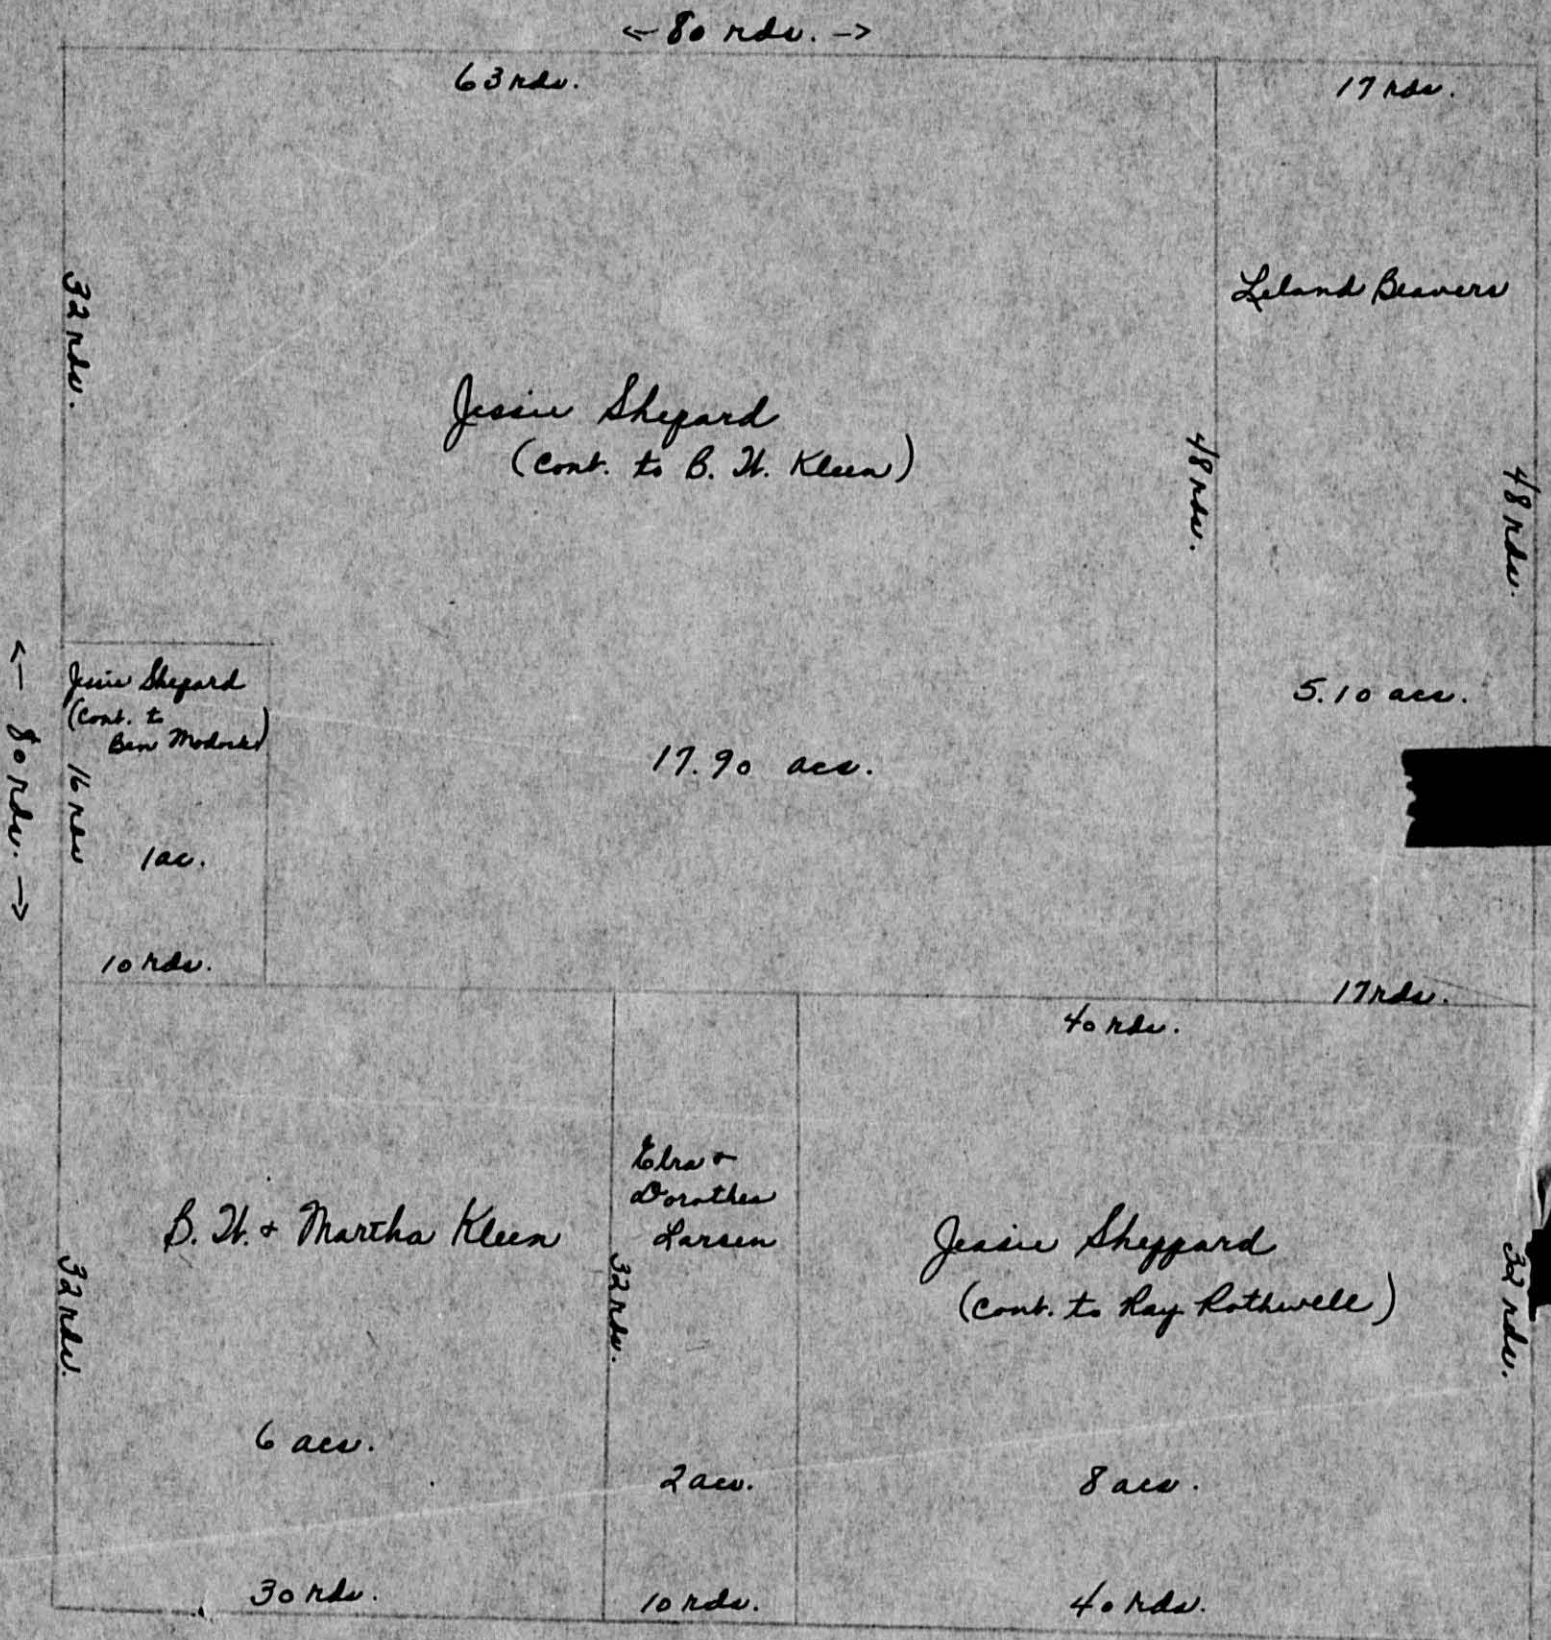 <- 80 rds. ->
63 rds.
17 rds.
32 rds.
Leland Beavers
Jessie Shepard
(Cont. to B. W. Kleen)
48 rds.
48 rds.
Jessie Shepard
(Cont. to
Ben
5.10 acs.
<- 80 rds. ->
16 rds
17.90 acs.
1 ac.
10 rds.
17 rds.
40 rds.
B. W. & Martha Kleen
32 rds.
6 acs.
30 rds.
Elra &
Dorothea
Larsen
32 rds.
2 acs.
10 rds.
Jessie Sheppard
(Cont. to Ray Rothwell)
32 rds.
8 acs.
40 rds.